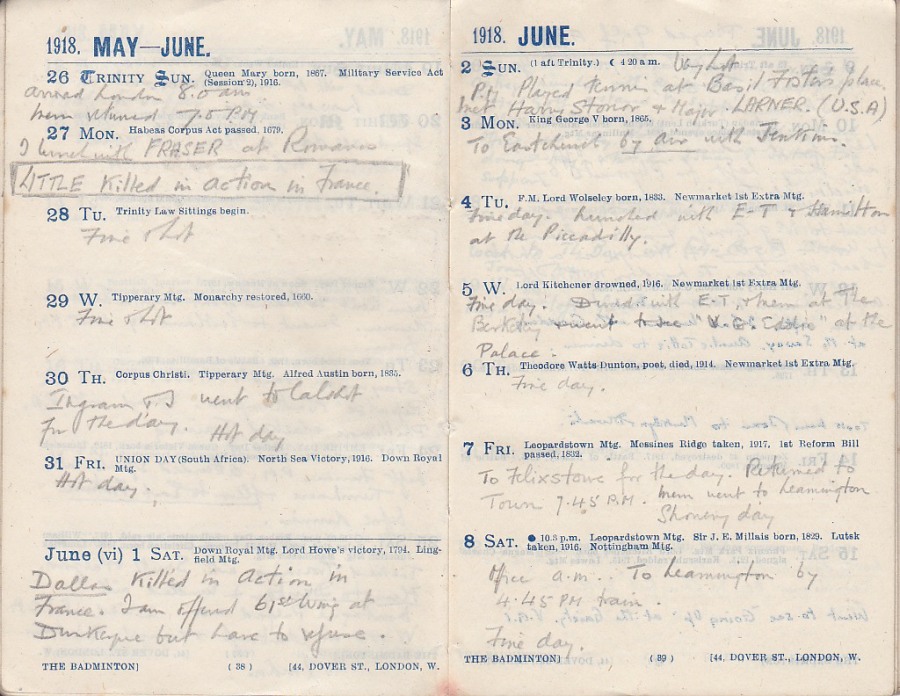 1918. MAY—JUNE.
26 TRINITY SUN. Queen Mary born, 1867. Military Service Act
(Session 2), 1916.
arrived London 8.0 am
Mem returned 7.5 PM
27 MON. Habeas Corpus Act passed, 1679.
I lunch with FRASER at Romanos
LITTLE Killed in action in France.
28 TU. Trinity Law Sittings begin.
Fine & hot
29 W. Tipperary Mtg. Monarchy restored, 1660.
Fine & hot
30 TH. Corpus Christi. Tipperary Mtg. Alfred Austin born, 1835.
Ingram & I went to Calshot
for the day. Hot day
31 FRI. UNION DAY (South Africa). North Sea Victory, 1916. Down Royal
Mtg.
Hot day.
June (vi) 1 SAT. Down Royal Mtg. Lord Howe's victory, 1794. Ling-
field Mtg.
Dallas Killed in Action in
France. I am offered 61st Wing at
Dunkerque but have to refuse.
THE BADMINTON] ( 38 ) [44, DOVER ST., LONDON, W.
1918. JUNE.
2 SUN. (1 aft Trinity.) ☾ 4 20 a.m. Very hot
P.M. Played tennis at Basil Foster's place
met Harry Stonor & Major LARNER. (U.S.A)
3 MON. King George V born, 1865.
To Eastchurch by air with Jenkins.
4 TU. F.M. Lord Wolseley born, 1833. Newmarket 1st Extra Mtg.
Fine day. Lunched with E-T & Hamilton
at the Piccadilly.
5 W. Lord Kitchener drowned, 1916. Newmarket 1st Extra Mtg.
Fine day. Dined with E.T. & Mem at The
Berkeley went to see at the
Palace.
6 TH. Theodore Watts Dunton, poet, died, 1914. Newmarket 1st Extra Mtg.
Fine day.
7 FRI. Leopardstown Mtg. Messines Ridge taken, 1917. 1st Reform Bill
passed, 1832.
To Felixstowe for the day. Returned to
Town 7.45 P.M. Mem went to Leamington
Showery day
8 SAT. ● 10.3 p.m. Leopardstown Mtg. Sir J. E. Millais born, 1829. Lutsk
taken, 1916. Nottingham Mtg.
Office a.m.. To Leamington by
4.45 PM train.
Fine day.
THE BADMINTON] ( 39 ) [44, DOVER ST., LONDON, W.